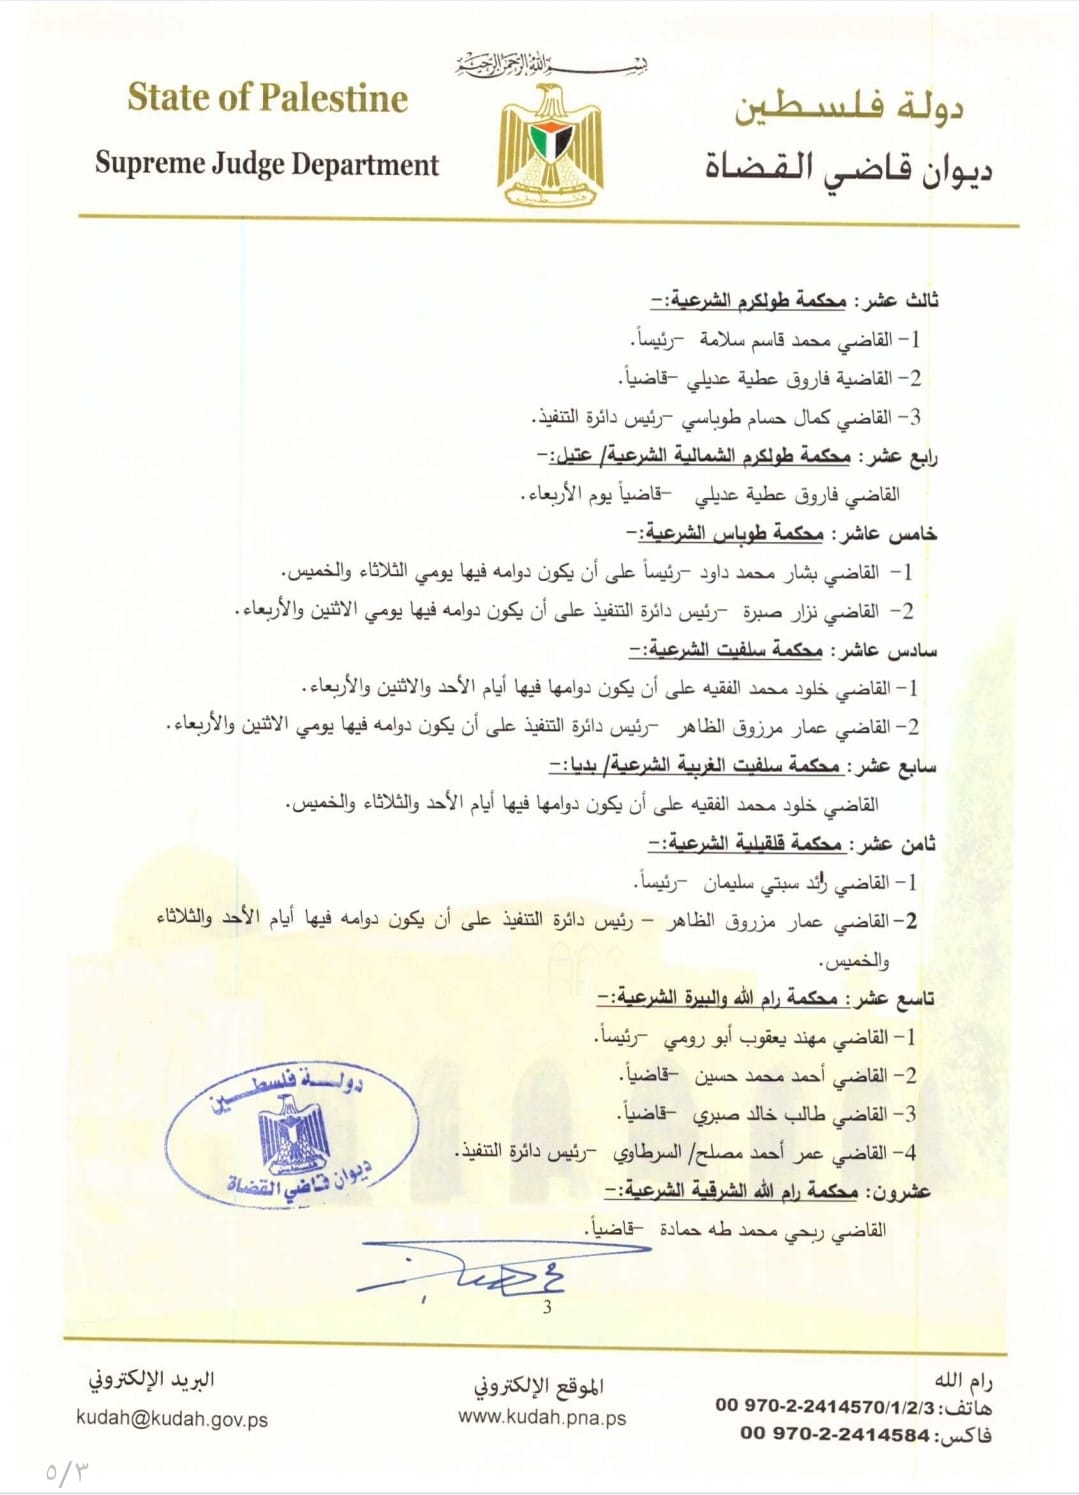 بسم الله الرحمن الرحيم
State of Palestine
دولة فلسطين
Supreme Judge Department
ديوان قاضي القضاة
فلسطين
ثالث عشر: محكمة طولكرم الشرعية:-
1- القاضي محمد قاسم سلامة -رئيساً.
2- القاضية فاروق عطية عديلي -قاضياً.
3- القاضي كمال حسام طوباسي -رئيس دائرة التنفيذ.
رابع عشر: محكمة طولكرم الشمالية الشرعية/ عتيل:-
القاضي فاروق عطية عديلي -قاضياً يوم الأربعاء.
خامس عاشر: محكمة طوباس الشرعية:-
1- القاضي بشار محمد داود -رئيساً على أن يكون دوامه فيها يومي الثلاثاء والخميس.
2- القاضي نزار صبرة -رئيس دائرة التنفيذ على أن يكون دوامه فيها يومي الاثنين والأربعاء.
سادس عاشر: محكمة سلفيت الشرعية:-
1- القاضي خلود محمد الفقيه على أن يكون دوامها فيها أيام الأحد والاثنين والأربعاء.
2- القاضي عمار مرزوق الظاهر -رئيس دائرة التنفيذ على أن يكون دوامه فيها يومي الاثنين والأربعاء.
سابع عشر: محكمة سلفيت الغربية الشرعية/ بديا:-
القاضي خلود محمد الفقيه على أن يكون دوامها فيها أيام الأحد والثلاثاء والخميس.
ثامن عشر: محكمة قلقيلية الشرعية:-
1- القاضي رائد سبتي سليمان -رئيساً.
2- القاضي عمار مزروق الظاهر - رئيس دائرة التنفيذ على أن يكون دوامه فيها أيام الأحد والثلاثاء
والخميس.
تاسع عشر: محكمة رام الله والبيرة الشرعية:-
1- القاضي مهند يعقوب أبو رومي -رئيساً.
2- القاضي أحمد محمد حسين -قاضياً.
3- القاضي طالب خالد صبري -قاضياً.
4- القاضي عمر أحمد مصلح/ السرطاوي -رئيس دائرة التنفيذ.
عشرون: محكمة رام الله الشرقية الشرعية:-
القاضي ربحي محمد طه حمادة -قاضياً.
دولة فلسطين
ديوان قاضي القضاة
3
رام الله
هاتف: 00 970-2-2414570/1/2/3
فاكس: 00 970-2-2414584
الموقع الإلكتروني
www.kudah.pna.ps
البريد الإلكتروني
kudah@kudah.gov.ps
٥/٣